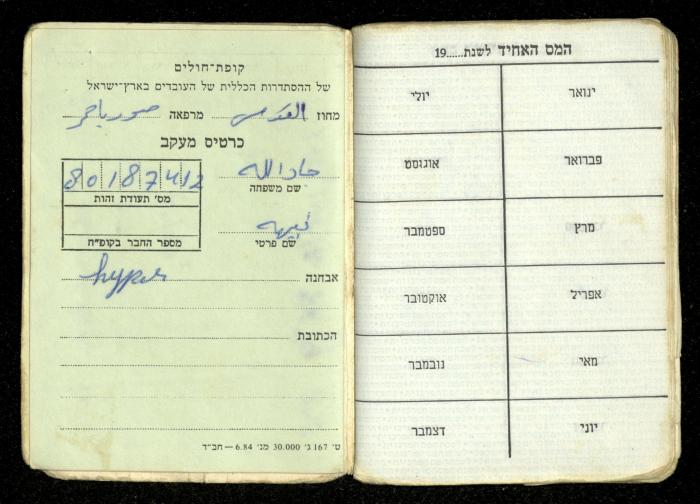 קופת-חולים
של ההסתדרות הכללית של העובדים בארץ-ישראל
מחוז القدس מרפאה صور باهر
כרטיס מעקב
جاد الله
שם משפחה
80187412
מס' תעודת זהות
نبيهه
שם פרטי
מספר החבר בקופ"ח
אבחנה hyper
הכתובת
ט' 167 ג' 30.000 מג' 6.84 — חב"ד
המס האחיד לשנת......19
ינואר
יולי
פברואר
אוגוסט
מרץ
ספטמבר
אפריל
אוקטובר
מאי
נובמבר
יוני
דצמבר